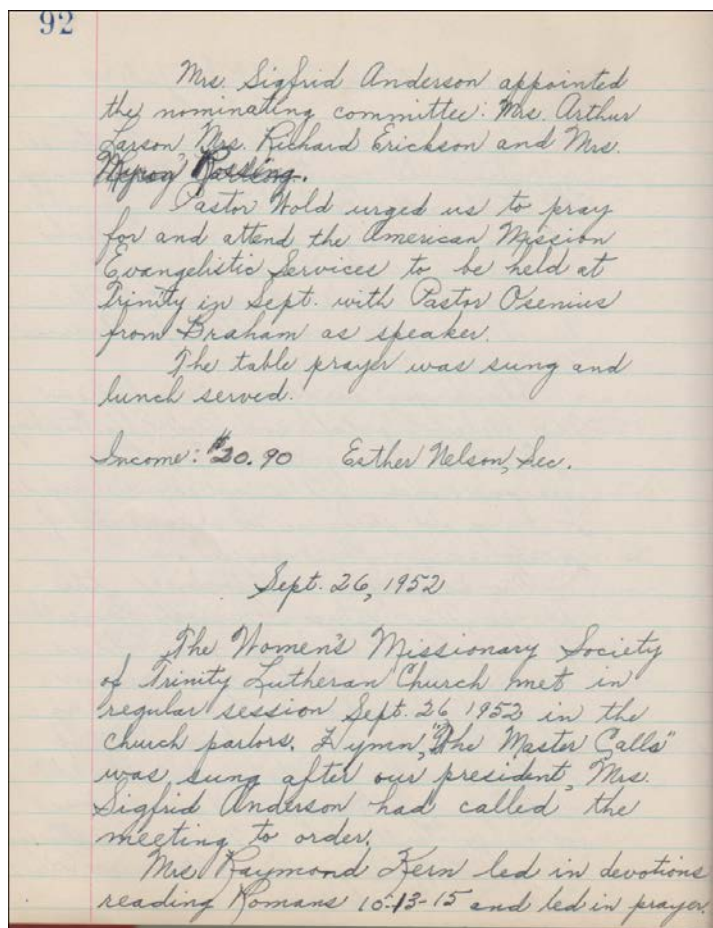 92
Mrs. Sigfrid Anderson appointed
the nominating committee: Mrs. Arthur
Larson, Mrs. Richard Erickson and Mrs.
Rossing.
Pastor Wold urged us to pray
for and attend the American Mission
Evangelistic Services to be held at
Trinity in Sept. with Pastor Osenius
from Braham as speaker.
The table prayer was sung and
lunch served.
Income: $20.90 Esther Nelson, Sec.
Sept. 26, 1952
The Women's Missionary Society
of Trinity Lutheran Church met in
regular session Sept. 26 1952 in the
church parlors. Hymn, "The Master Calls"
was sung after our president, Mrs.
Sigfrid Anderson had called the
meeting to order.
Mrs. Raymond Kern led in devotions
reading Romans 10:13-15 and led in prayer.